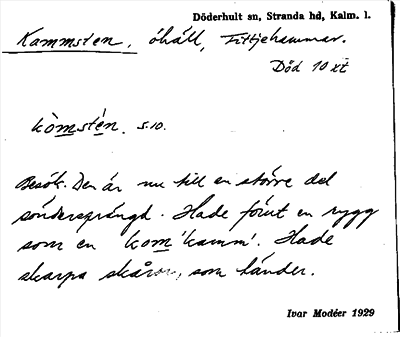 Döderhult sn, Stranda hd, Kalm. l.
Kammsten, öhäll, Fittjehammar.
Död 10 xt
kòmstén. S.10.
Besök. Den är nu till en större del
söndersprängd. Hade förut en rygg
som en kom 'kamm'. Hade
skarpa skåror, som tänder.
Ivar Modéer 1929